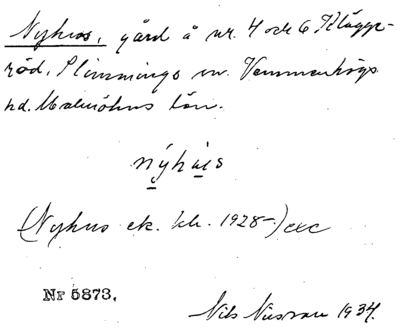 Nyhus, gård å nr. 4 och 6 Kläggeröd, Slimminge sn. Vemmenhögs
hd. Malmöhus län.
nýhu̱s
(Nyhus ek. bl. 1928-)
Nr 5873.
Nils Nilsson 1934.